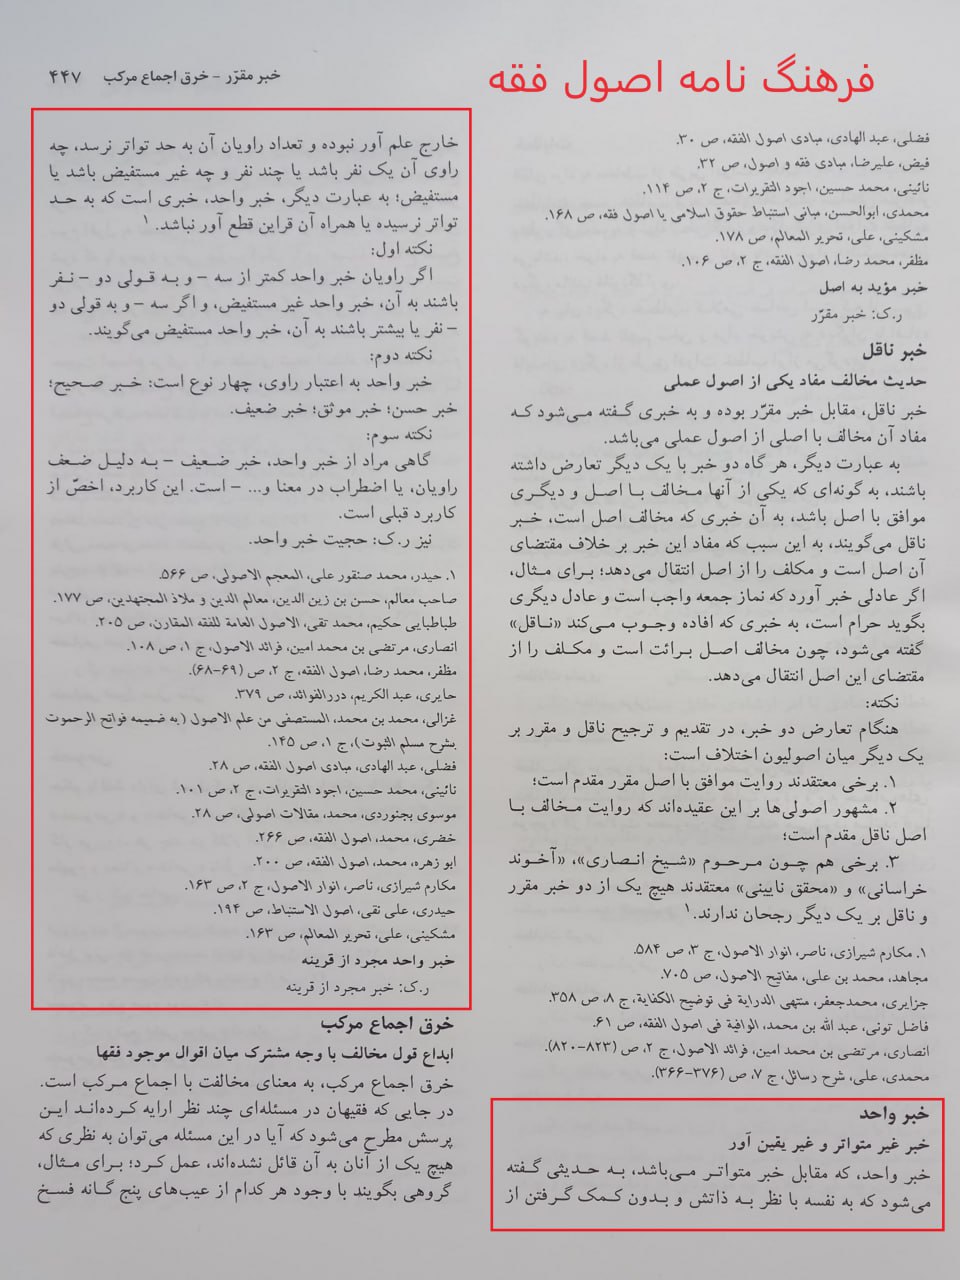 فرهنگ نامه اصول فقه
خبر مقرّر – خرق اجماع مرکب ۴۴۷
فضلی، عبد الهادی، مبادی اصول الفقه، ص ۳۰.
فیض، علیرضا، مبادی فقه و اصول، ص ۳۲.
نائینی، محمد حسین، اجود التقریرات، ج ۲، ص ۱۱۴.
محمدی، ابوالحسن، مبانی استنباط حقوق اسلامی یا اصول فقه، ص ۱۶۸.
مشکینی، علی، تحریر المعالم، ص ۱۷۸.
مظفر، محمد رضا، اصول الفقه، ج ۲، ص ۱۰۶.
خبر مؤید به اصل
ر.ک: خبر مقرّر
خبر ناقل
حدیث مخالف مفاد یکی از اصول عملی
خبر ناقل، مقابل خبر مقرّر بوده و به خبری گفته می‌شود که
مفاد آن مخالف با اصلی از اصول عملی می‌باشد.
به عبارت دیگر، هر گاه دو خبر با یک دیگر تعارض داشته
باشند، به گونه‌ای که یکی از آنها مخالف با اصل و دیگری
موافق با اصل باشد، به آن خبری که مخالف اصل است، خبر
ناقل می‌گویند، به این سبب که مفاد این خبر بر خلاف مقتضای
آن اصل است و مکلف را از اصل انتقال می‌دهد؛ برای مثال،
اگر عادلی خبر آورد که نماز جمعه واجب است و عادل دیگری
بگوید حرام است، به خبری که افاده وجوب می‌کند «ناقل»
گفته می‌شود، چون مخالف اصل برائت است و مکلف را از
مقتضای این اصل انتقال می‌دهد.
نکته:
هنگام تعارض دو خبر، در تقدیم و ترجیح ناقل و مقرر بر
یک دیگر میان اصولیون اختلاف است:
۱. برخی معتقدند روایت موافق با اصل مقرر مقدم است؛
۲. مشهور اصولی‌ها بر این عقیده‌اند که روایت مخالف با
اصل ناقل مقدم است؛
۳. برخی هم چون مرحوم «شیخ انصاری»، «آخوند
خراسانی» و «محقق نایینی» معتقدند هیچ یک از دو خبر مقرر
و ناقل بر یک دیگر رجحان ندارند.۱
۱. مکارم شیرازی، ناصر، انوار الاصول، ج ۳، ص ۵۸۴.
مجاهد، محمد بن علی، مفاتیح الاصول، ص ۷۰۵.
جزایری، محمدجعفر، منتهی الدرایة فی توضیح الکفایة، ج ۸، ص ۳۵۸.
فاضل تونی، عبد الله بن محمد، الوافیة فی اصول الفقه، ص ۶۱.
انصاری، مرتضی بن محمد امین، فرائد الاصول، ج ۲، ص (۸۲۳-۸۲۰).
محمدی، علی، شرح رسائل، ج ۷، ص (۳۷۶-۳۶۶).
خبر واحد
خبر غیر متواتر و غیر یقین آور
خبر واحد، که مقابل خبر متواتر می‌باشد، به حدیثی گفته
می‌شود که به نفسه با نظر به ذاتش و بدون کمک گرفتن از
خارج علم آور نبوده و تعداد راویان آن به حد تواتر نرسد، چه
راوی آن یک نفر باشد یا چند نفر و چه غیر مستفیض باشد یا
مستفیض؛ به عبارت دیگر، خبر واحد، خبری است که به حد
تواتر نرسیده یا همراه آن قراین قطع آور نباشد.۱
نکته اول:
اگر راویان خبر واحد کمتر از سه – و به قولی دو – نفر
باشند به آن، خبر واحد غیر مستفیض، و اگر سه – و به قولی دو
– نفر یا بیشتر باشند به آن، خبر واحد مستفیض می‌گویند.
نکته دوم:
خبر واحد به اعتبار راوی، چهار نوع است: خبر صحیح؛
خبر حسن؛ خبر موثق؛ خبر ضعیف.
نکته سوم:
گاهی مراد از خبر واحد، خبر ضعیف – به دلیل ضعف
راویان، یا اضطراب در معنا و... – است. این کاربرد، اخصّ از
کاربرد قبلی است.
نیز ر.ک: حجیت خبر واحد.
۱. حیدر، محمد صنقور علی، المعجم الاصولی، ص ۵۶۶.
صاحب معالم، حسن بن زین الدین، معالم الدین و ملاذ المجتهدین، ص ۱۷۷.
طباطبایی حکیم، محمد تقی، الاصول العامة للفقه المقارن، ص ۲۰۵.
انصاری، مرتضی بن محمد امین، فرائد الاصول، ج ۱، ص ۱۰۸.
مظفر، محمد رضا، اصول الفقه، ج ۲، ص (۶۹-۶۸).
حایری، عبد الکریم، دررالفوائد، ص ۳۷۹.
غزالی، محمد بن محمد، المستصفی من علم الاصول (به ضمیمه فواتح الرحموت
بشرح مسلم الثبوت)، ج ۱، ص ۱۴۵.
فضلی، عبد الهادی، مبادی اصول الفقه، ص ۲۸.
نائینی، محمد حسین، اجود التقریرات، ج ۲، ص ۱۰۱.
موسوی بجنوردی، محمد، مقالات اصولی، ص ۲۸.
خضری، محمد، اصول الفقه، ص ۲۶۶.
ابو زهره، محمد، اصول الفقه، ص ۲۰۰.
مکارم شیرازی، ناصر، انوار الاصول، ج ۲، ص ۱۶۳.
حیدری، علی نقی، اصول الاستنباط، ص ۱۹۴.
مشکینی، علی، تحریر المعالم، ص ۱۶۳.
خبر واحد مجرد از قرینه
ر.ک: خبر مجرد از قرینه
خرق اجماع مرکب
ابداع قول مخالف با وجه مشترک میان اقوال موجود فقها
خرق اجماع مرکب، به معنای مخالفت با اجماع مرکب است.
در جایی که فقیهان در مسئله‌ای چند نظر ارایه کرده‌اند این
پرسش مطرح می‌شود که آیا در این مسئله می‌توان به نظری که
هیچ یک از آنان به آن قائل نشده‌اند، عمل کرد؛ برای مثال،
گروهی بگویند با وجود هر کدام از عیب‌های پنج گانه فسخ